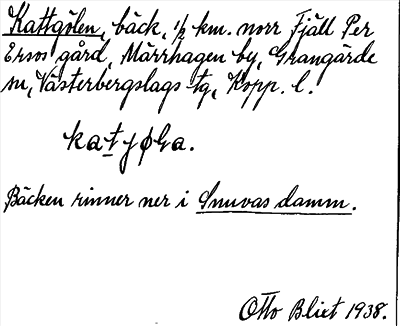 Kattgölen, bäck, 1/2 km. norr Fjäll Per
Ersos gård, Mårrhagen by, Grangärde
sn, Västerbergslags tg, Kopp. l.
Bäcken rinner ner i Snuvas damm.
Otto Blixt 1938.